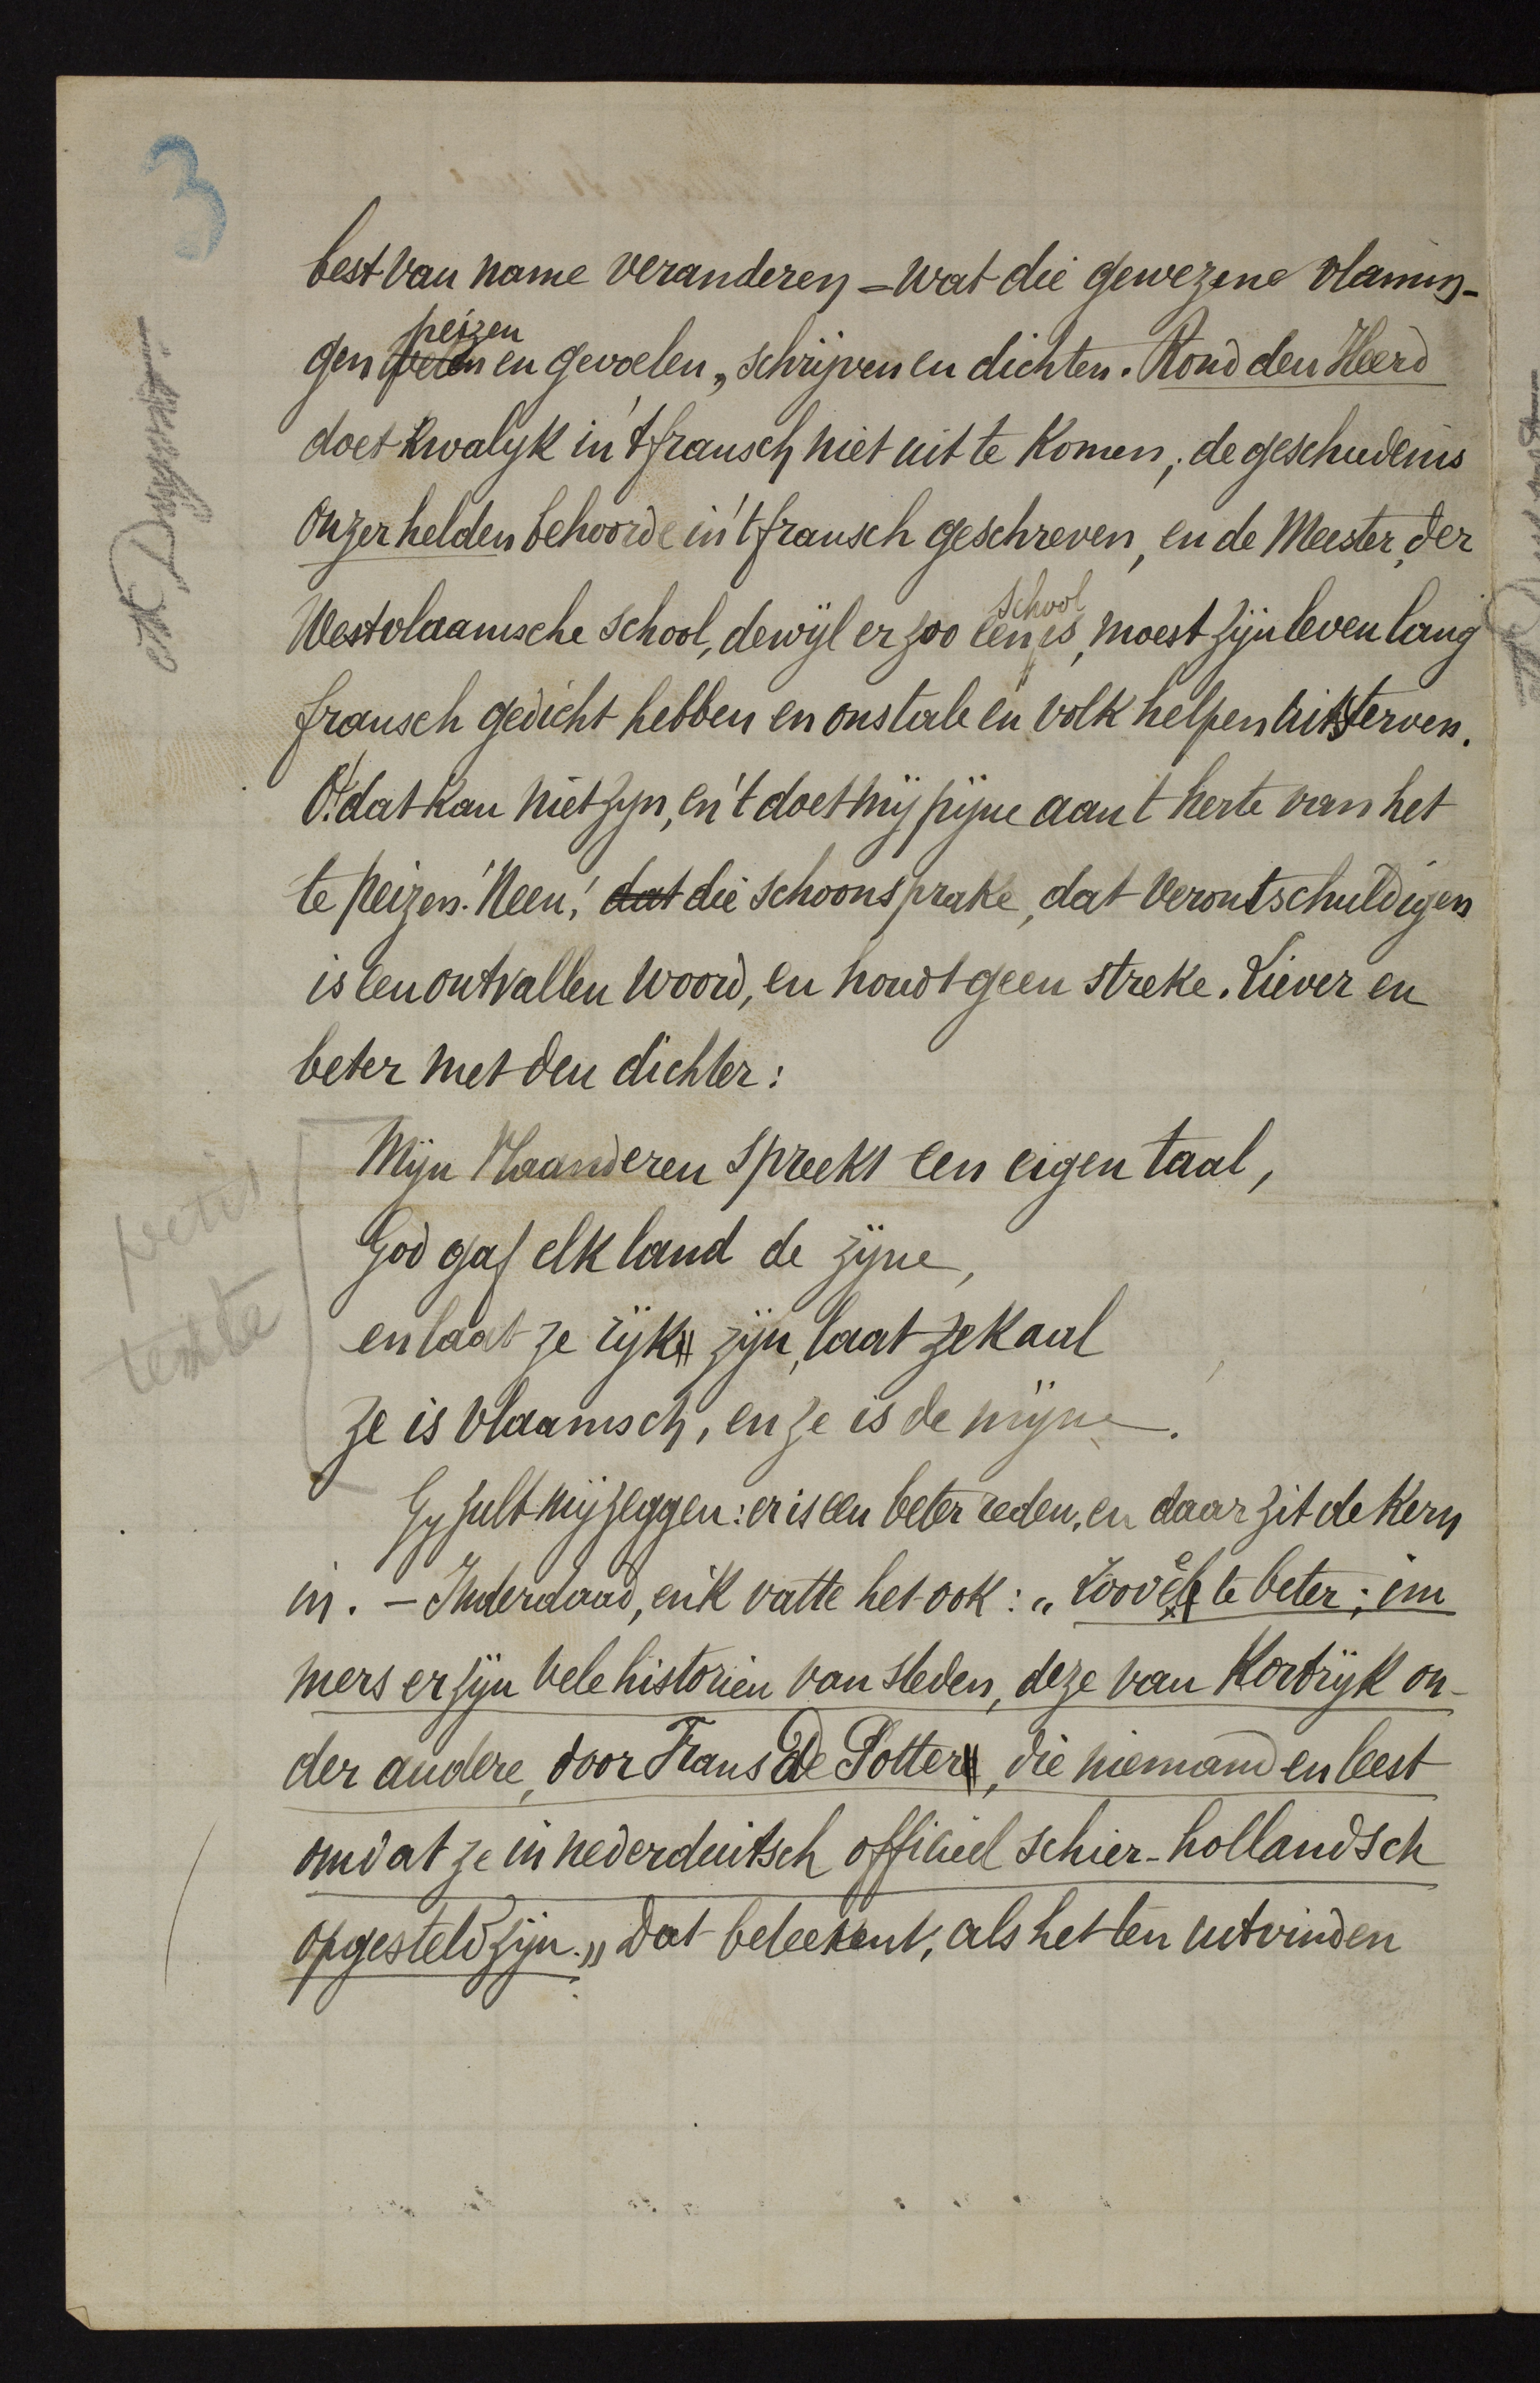 3
best van name veranderen – wat die gewezene vlamin-
peizen
gen en gevoelen, schrijven en dichten. Rond den Heerd
doet kwalyk in 't fransch niet uit te komen; de geschiedenis
onzer helden behoorde in 't fransch geschreven, en de Meester, der
school
Westvlaamsche school, dewijl er zoo een is, moest zijn leven lang
fransch gedicht hebben en ons tale en volk helpen uitsterven.
O! dat kan niet zyn, en 't doet mij pijne aan 't herte van het
te peizen! Neen! dat die schoonsprake, dat verontschuldigen
is een ontvallen woord, en houdt geen streke. Liever en
beter met den dichter:
Mijn Vlaanderen spreekt een eigen taal,
God gaf elk land de zijne,
en laat ze rijk zijn, laat ze kaal
ze is vlaamsch, en ze is de mijne.
petit
texte
Gy zult mij zeggen: er is een beter reden, en daar zit de kern
in. – Inderdaad, en ik vatte het ook: „Zoovele te beter; im
mers er zijn vele historien van steden, deze van Kortrijk on-
der andere, door Frans De Potter, die niemand en leest
omdat ze in nederduitsch officieel schier-hollandsch
opgesteld zijn.„ Dat beteekent, als het ten uitvinden